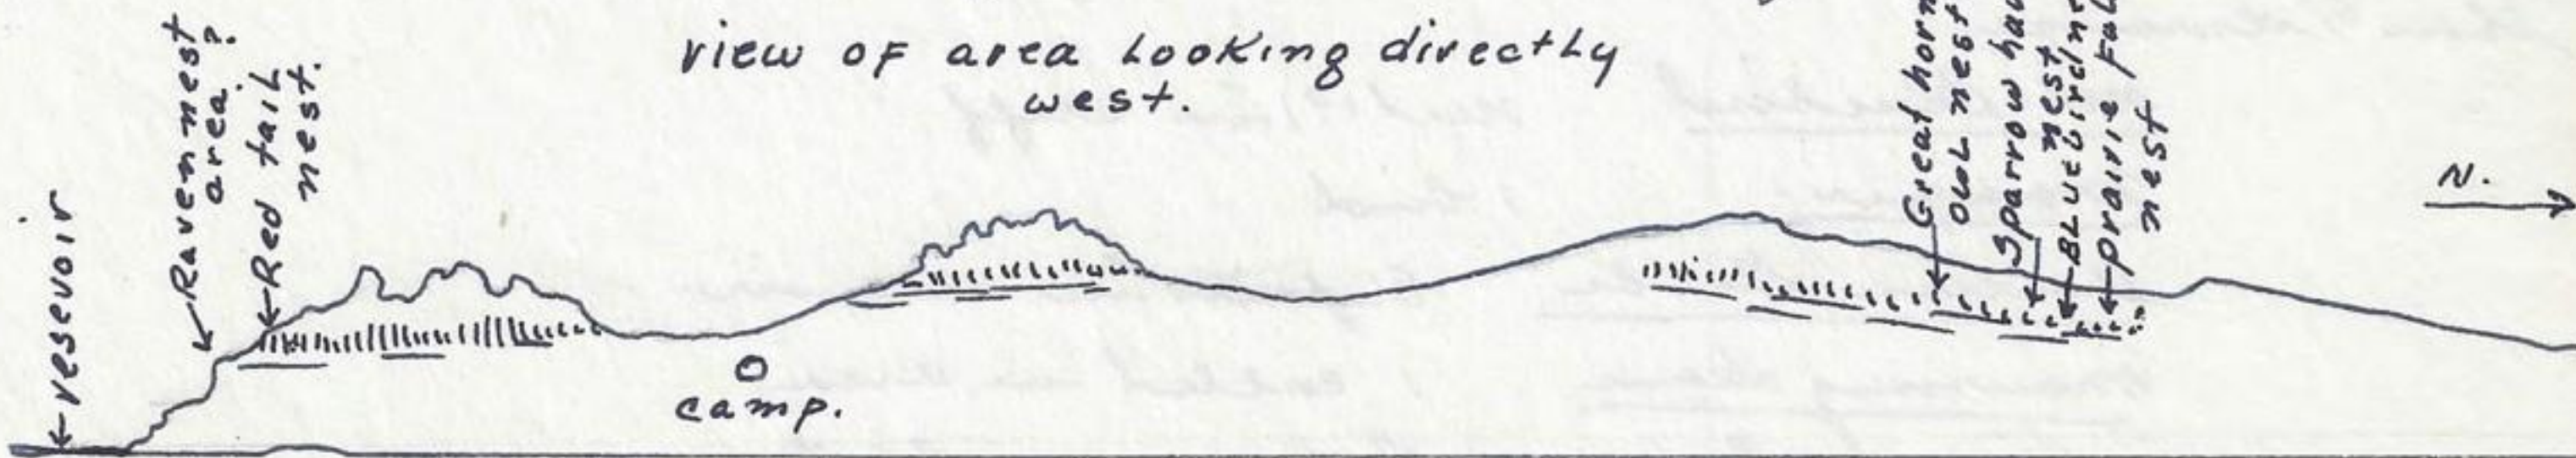 view of area looking directly
west.
reservoir
Raven nest
area?
Red tail
nest.
camp.
Great horn
owl nest
Sparrow haw
nest
Bluebird ne
prairie Fal
nest
N.